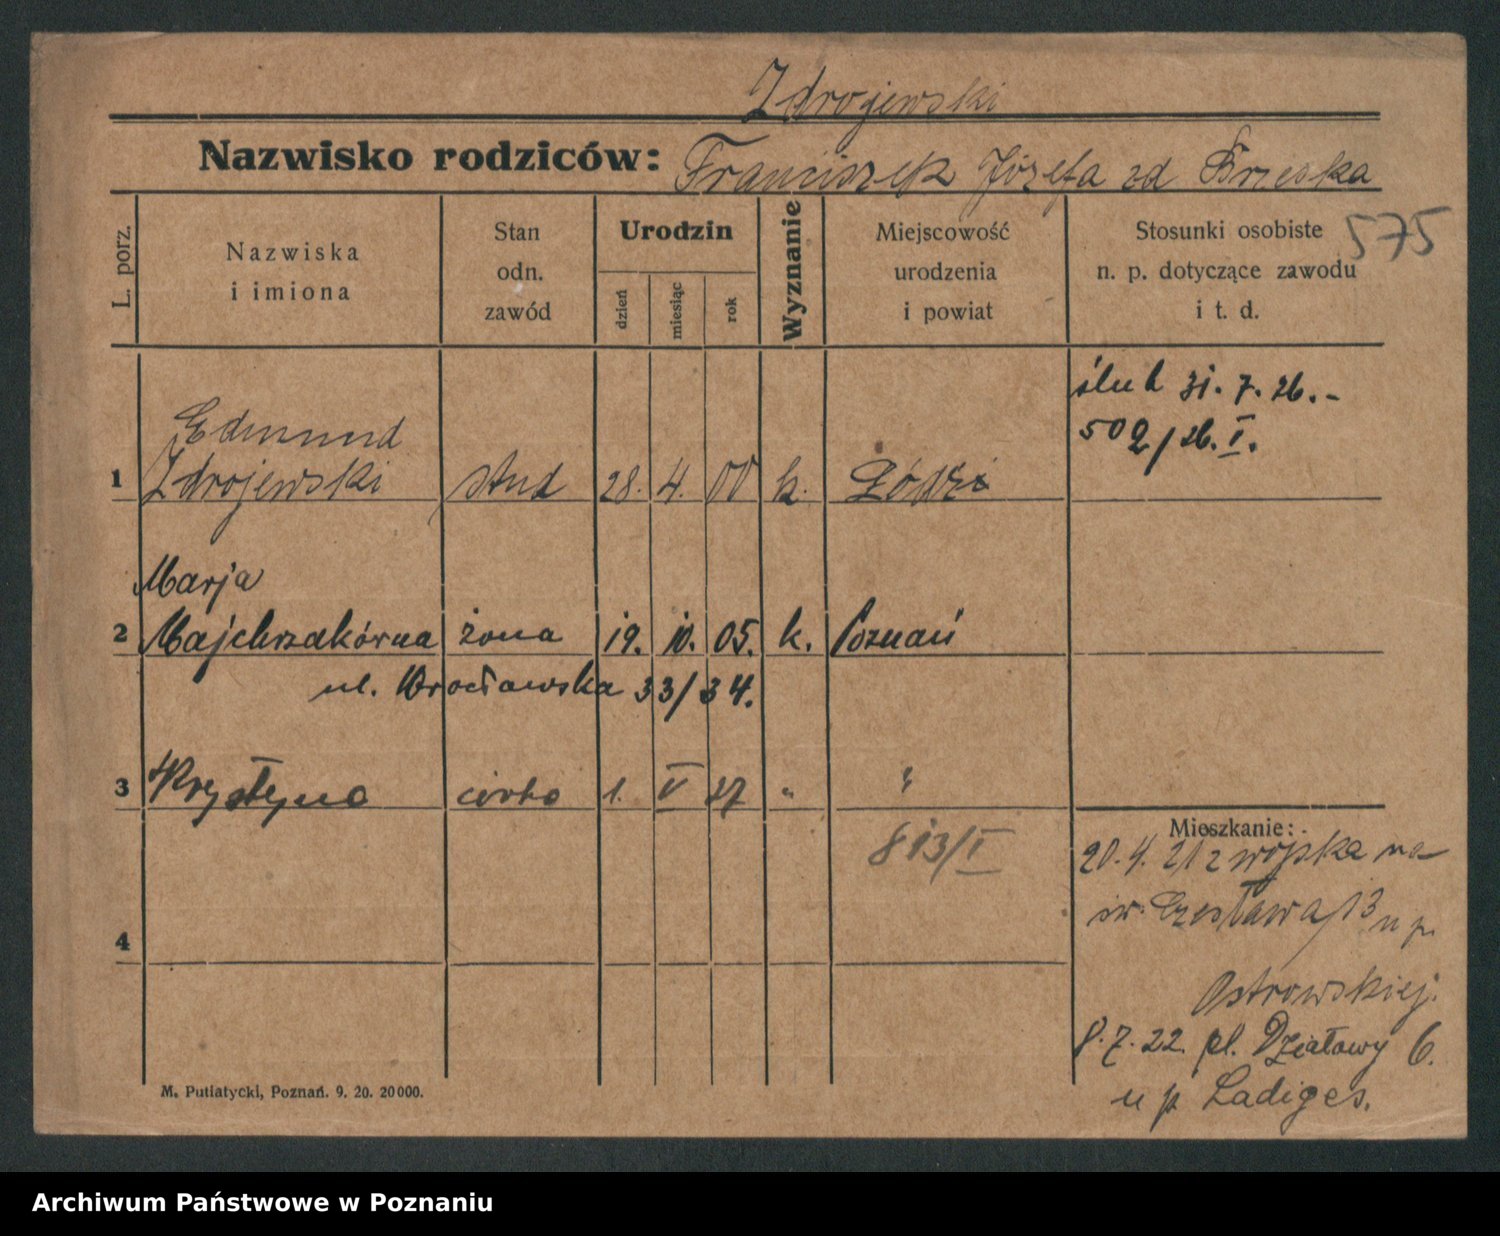 Zdrojewski
Nazwisko rodziców: Franciszek Józefa zd Brzeska
575
L. porz.
Nazwiska
i imiona
Stan
odn.
zawód
Urodzin
dzień
miesiąc
rok
Wyznanie
Miejscowość
urodzenia
i powiat
Stosunki osobiste
n. p. dotyczące zawodu
i t. d.
ślub 31. 7. 26. -
502/26. I.
Edmund
1 Zdrojewski stud 28. 4. 00 k. Łódź
Marja
2 Majchrzakówna żona 19. 10. 05. k. Poznań
ul. Wrocławska 33/34.
3 Krystyna córka 1. V 27 " "
813/I
Mieszkanie:
20. 4. 21 z wojska na
św. Czesława 13 u p.
Ostrowskiej.
4
8. 7. 22. pl. Działowy 6.
u p Ladiges.
M. Putiatycki, Poznań. 9. 20. 20000.
Archiwum Państwowe w Poznaniu